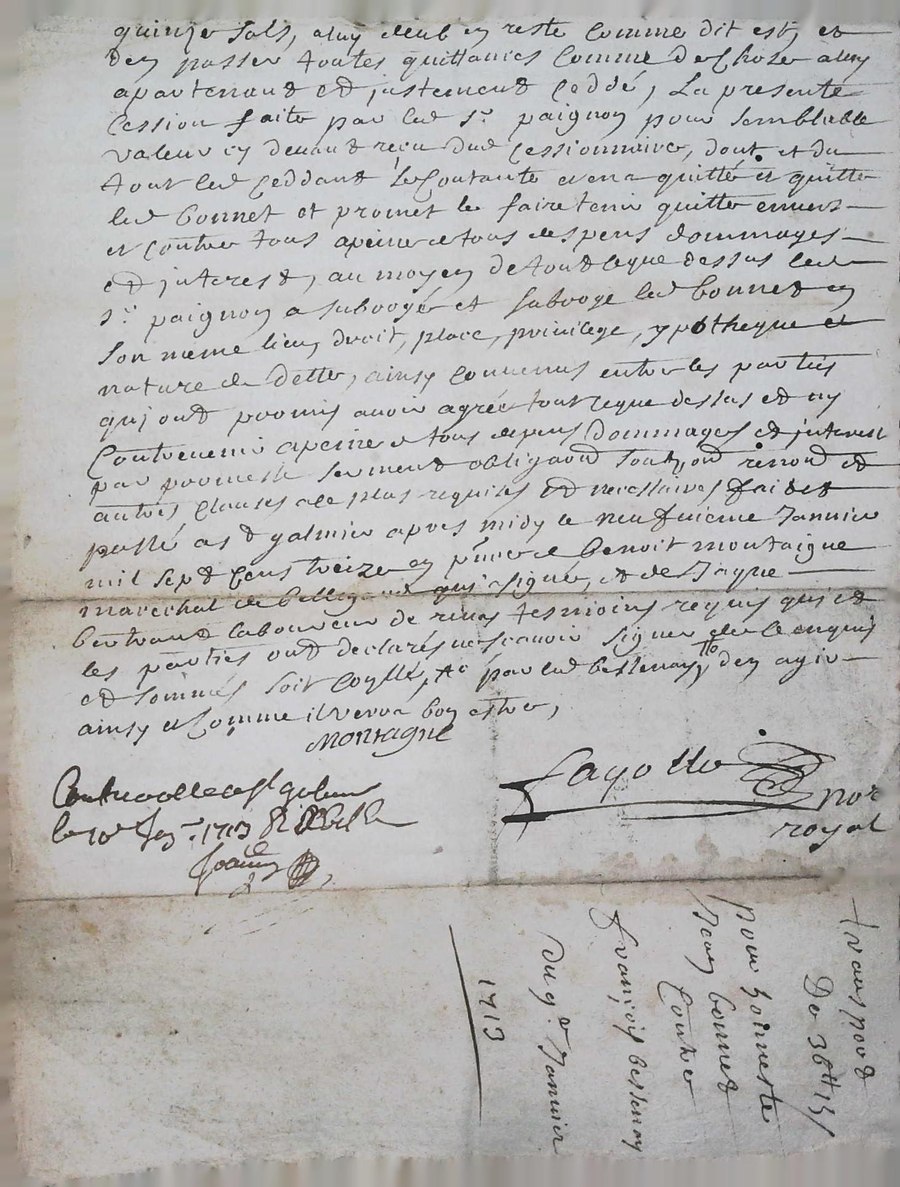 quinze sols, a luy deub en reste comme dit est, et
den passer toutes quittances comme de chose a luy
apartenant et justement ceddé, La presente
Cession faite par led sr. paignon pour semblable
valeur cy devant receu dud cessionnaire, dont et du
tout led ceddant se contante et en a quitté et quitte
led bonnet et promet le faire tenir quitte envers
et contre tous a peine de tous despens dommages
et interest, au moyen de tout ce que dessus led
sr. paignon a subrogé et subroge led bonnet en
son meme lieu, droit, place, privilege, ypotheque et
nature de dette, ainsy convenus entre les parties
qui ont promis avoir agrée tout ce que dessus et ny
Contrevenir a peine de tous depens dommages et interest
par promesse serment obligaon soub,on renond et
autres clauses a le plus requises et necessaires fait et
passé a st galmier apres midy le neufvieme Janvier
mil sept cent treize en pnce de Benoit montaigne
marechal de qui a signé, et de
bertrand laboureur de tesmoins requis qui et
les parties ont declarés ne scavoir signer de ce enquis
et sommés soit coyllé, par led bessenay den agir
ainsy et comme il verra bon estre,
Montagne
Fayolle nor
royal
Controollé a st galmier
le 10e Janr. 1713
transport
De 36tt 15s
pour honneste
bonnet
Contre
françois bessenay
du 9e Janvier
1713